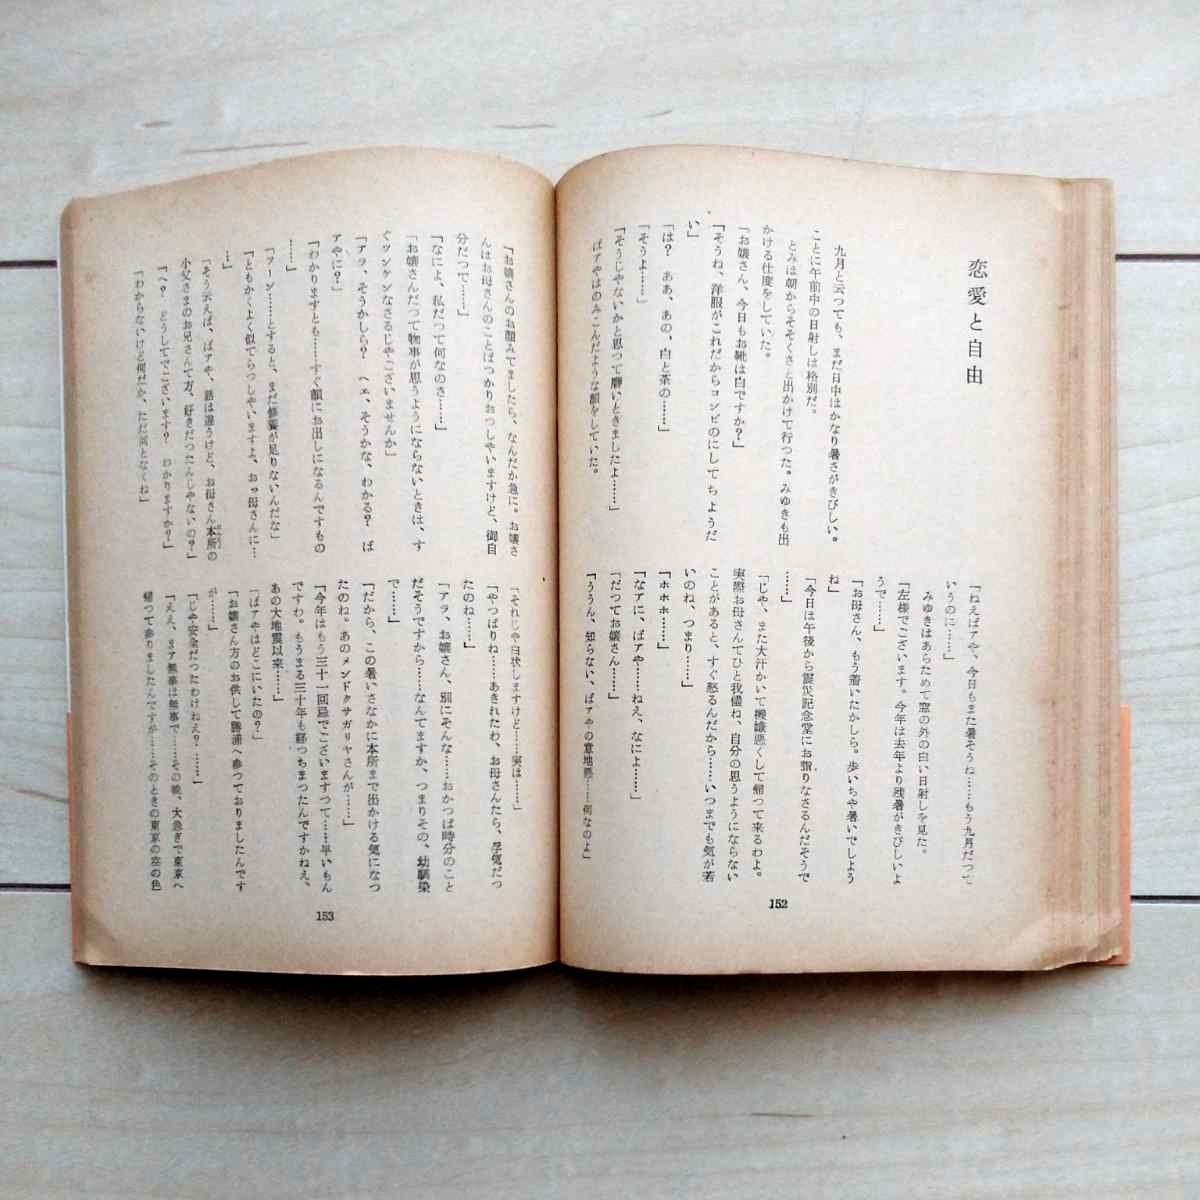 恋愛と自由
九月と云つても、まだ日中はかなり暑さがきびしい。
ことに午前中の日射しは格別だ。
とみは朝からそそくさと出かけて行つた。みゆきも出
かける仕度をしていた。
「お嬢さん、今日もお靴は白ですか?」
「そうね、洋服がこれだからコンビのにしてちようだ
い」
「は? ああ、あの、白と茶の……」
「そうよ……」
「そうじやないかと思つて磨いときましたよ……」
ばアやはのみこんだような顔をしていた。
「ねえばアや、今日もまた暑そうね……もう九月だつて
いうのに……」
みゆきはあらためて窓の外の白い日射しを見た。
「左様でございます。今年は去年より残暑がきびしいよ
うで……」
「お母さん、もう着いたかしら。歩いちや暑いでしよう
ね」
「今日は午後から震災記念堂にお詣りなさるんだそうで
……」
「じや、また大汗かいて機嫌悪くして帰つて来るわよ。
実際お母さんてひと我儘ね、自分の思うようにならない
ことがあると、すぐ怒るんだから……いつまでも気が若
いのね、つまり……」
「ホホホ……」
「なアに、ばアや……ねえ、なによ……」
「だつてお嬢さん……」
「ううん、知らない、ばアやの意地悪……何なのよ」
152
「お嬢さんのお顔みてましたら、なんだか急に。お嬢さ
んはお母さんのことばつかりおつしやいますけど、御自
分だつて……」
「なによ、私だつて何なのさ……」
「お嬢さんだつて物事が思うようにならないときは、す
ぐツンケンなさるじやございませんか」
「アラ、そうかしら? ヘェ、そうかな、わかる? ば
アやに?」
「わかりますとも……すぐ顔にお出しになるんですもの
……」
「フーン……とすると、まだ修養が足りないんだな」
「ともかくよく似てらつしやいますよ、お母さんに…
…」
「そう云えば、ばアや、話は違うけど、お母さん本所の
小父さまのお兄さんて方、好きだつたんじやないの?」
「ヘ? どうしてでございます? わかりますか?」
「わからないけど何だか、ただ何となくね」
「それじや白状しますけど……実は……」
「やつぱりね……あきれたわ、お母さんたら、浮気だつ
たのね……」
「アラ、お嬢さん、別にそんな……おかつぱ時分のこと
だそうですから……なんてますか、つまりその、幼馴染
で……」
「だから、この暑いさなかに本所まで出かける気になつ
たのね。あのメンドクサガリヤさんが……」
「今年はもう三十一回忌でございますつて……早いもん
ですわ。もうまる三十年も経つちまつたんですかねえ、
あの大地震以来……」
「ばアやはどこにいたの?」
「お嬢さん方のお供して勝浦へ参つておりましたんです
が……」
「じや安全だつたわけねえ? ……」
「ええ、まア無事は無事で……その晩、大急ぎで東京へ
帰つて参りましたんですが……そのときの東京の空の色
153